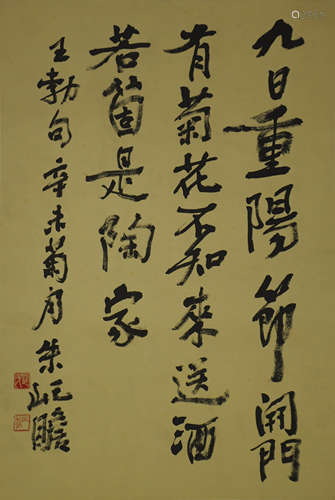 九日重陽節開門
有菊花不知來送酒
若箇是陶家
王勃句辛未菊月朱屺瞻